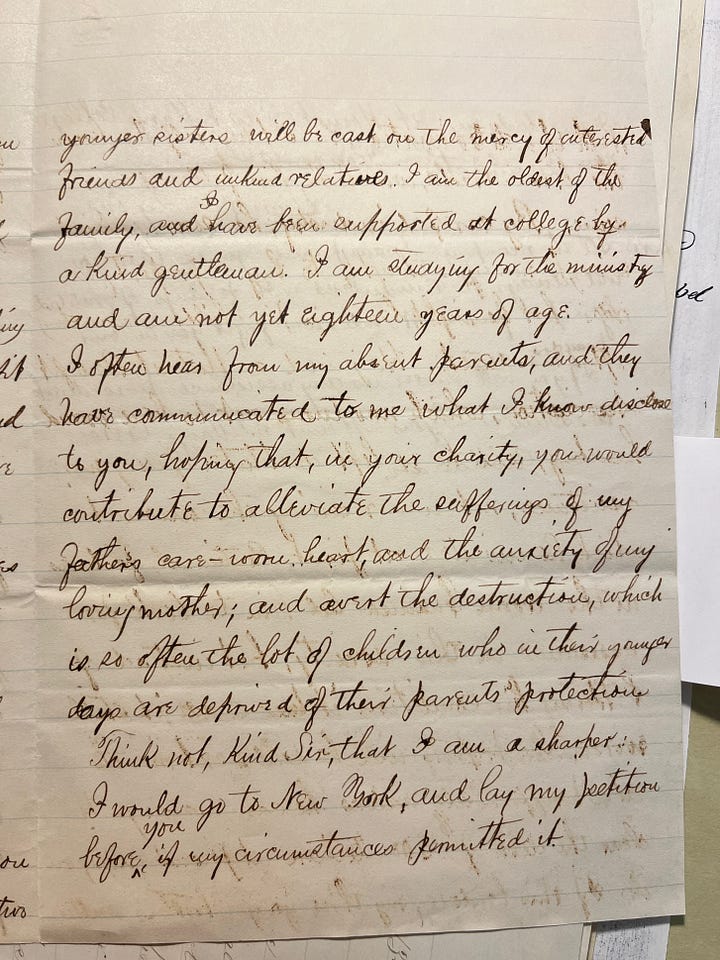 younger sisters will be cast on the mercy of interested
friends and unkind relatives. I am the oldest of the
family, and I have been supported at college by
a kind gentleman. I am studying for the ministry
and am not yet eighteen years of age.
I often hear from my absent parents, and they
have communicated to me what I know disclose
to you, hoping that, in your charity, you would
contribute to alleviate the sufferings of my
fathers care-worn heart, and the anxiety of my
loving mother; and avert the destruction, which
is so often the lot of children who in their younger
days are deprived of their parents' protection
Think not, Kind Sir, that I am a sharper:
I would go to New York, and lay my petition
before you, if my circumstances permitted it.